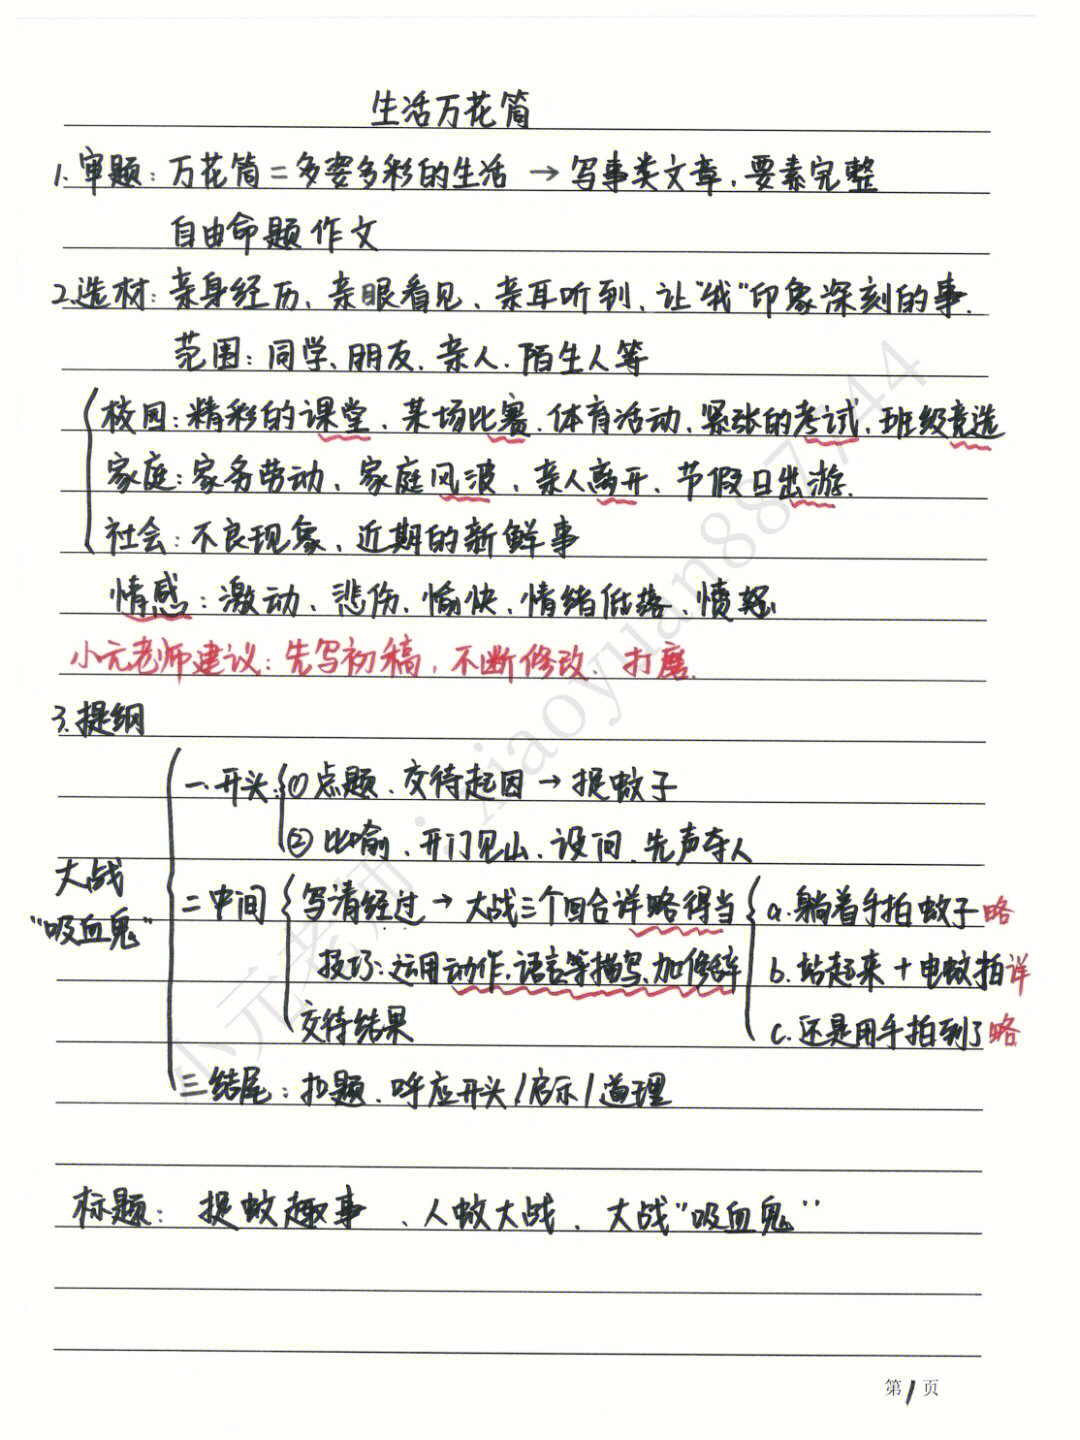 生活万花筒
1.审题：万花筒=多姿多彩的生活 → 写事类文章、要素完整
自由命题作文
2.选材：亲身经历、亲眼看见、亲耳听到、让“我”印象深刻的事.
范围：同学、朋友、亲人、陌生人等
校园：精彩的课堂、某场比赛、体育活动、紧张的考试、班级竞选
家庭：家务劳动、家庭风波、亲人离开、节假日出游.
社会：不良现象、近期的新鲜事
情感：激动、悲伤、愉快、情绪低落、愤怒
小元老师建议：先写初稿，不断修改、打磨.
3.提纲
大战“吸血鬼”
一.开头：①点题、交待起因 → 捉蚊子
②比喻、开门见山、设问、先声夺人
二中间 写清经过 → 大战三个回合详略得当
技巧：运用动作、语言等描写、加修辞
交待结果
a.躺着手拍蚊子 略
b.站起来+电蚊拍 详
c.还是用手拍到了 略
三结尾：扣题、呼应开头/启示/道理
标题：捉蚊趣事、人蚊大战、大战“吸血鬼”
第1页
小元老师：xiaoyuan887744